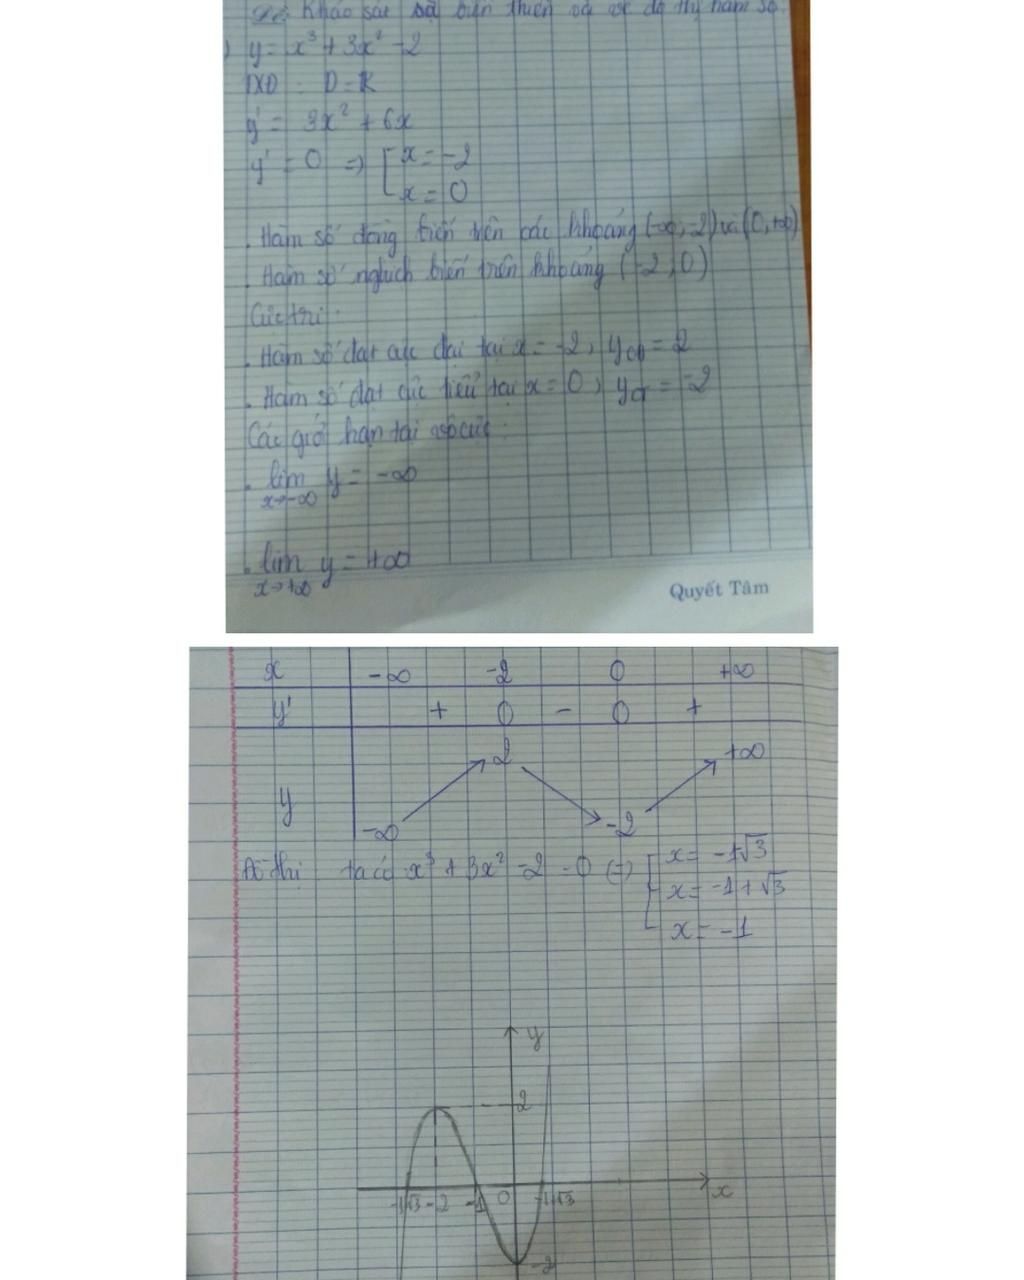 Khảo sát sự biến thiên và vẽ đồ thị hàm số
) y = x³ + 3x² - 2
TXĐ : D = R
y' = 3x² + 6x
y' = 0 => [ x = -2
x = 0
. Hàm số đồng biến trên các khoảng (-∞; -2) và (0; +∞)
. Hàm số nghịch biến trên khoảng (-2; 0)
Cực trị:
. Hàm số đạt cực đại tại x = -2, yCĐ = 2
. Hàm số đạt cực tiểu tại x = 0, yCT = -2
Các giới hạn tại vô cực:
. lim y = -∞
x→-∞
. lim y = +∞
x→+∞
Quyết Tâm
x -∞ -2 0 +∞
y' + 0 - 0 +
2 +∞
y
-∞ -2
Đồ thị ta có x³ + 3x² - 2 = 0 (=) [ x = -1√3
x = -1 + √3
x = -1
y
2
-1√3 -2 -1 0 -1√3 x
-2